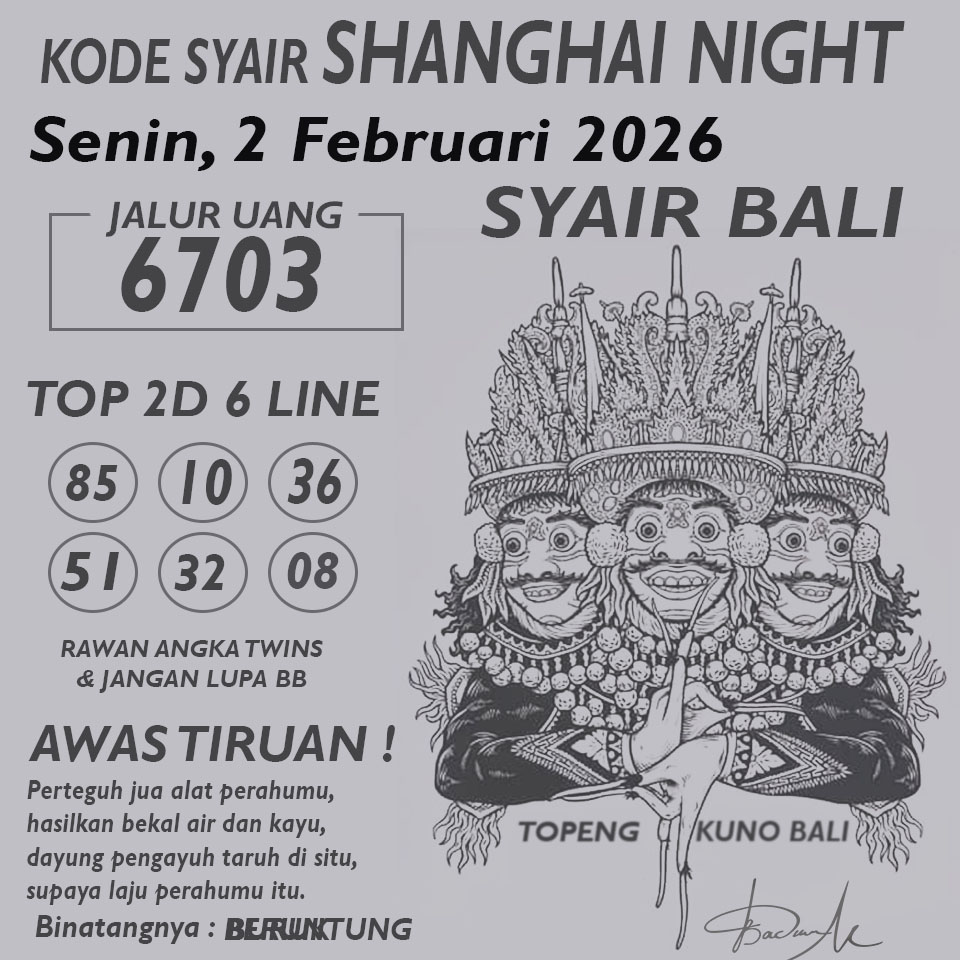 KODE SYAIR SHANGHAI NIGHT
Senin, 2 Februari 2026
SYAIR BALI
JALUR UANG
6703
TOP 2D 6 LINE
85 10 36
51 32 08
RAWAN ANGKA TWINS
& JANGAN LUPA BB
AWAS TIRUAN !
Perteguh jua alat perahumu,
hasilkan bekal air dan kayu,
dayung pengayuh taruh di situ,
supaya laju perahumu itu.
Binatangnya :
TOPENG KUNO BALI